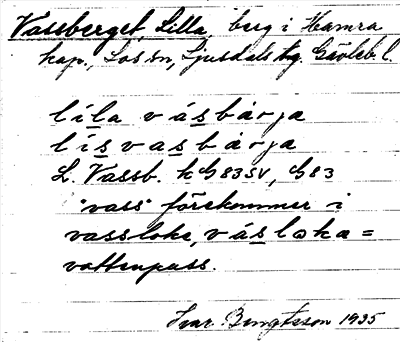 Vassberget, Lilla, berg i Hamra
kap., Los sn, Ljusdals tg. Gävleb. l.
líla vásbárja
lísvasbárja
L. Vassb. k G83SV, G83
"vass" förekommer i
vassloka, vásloka =
vattenpuss.
Ivar Bengtsson 1935